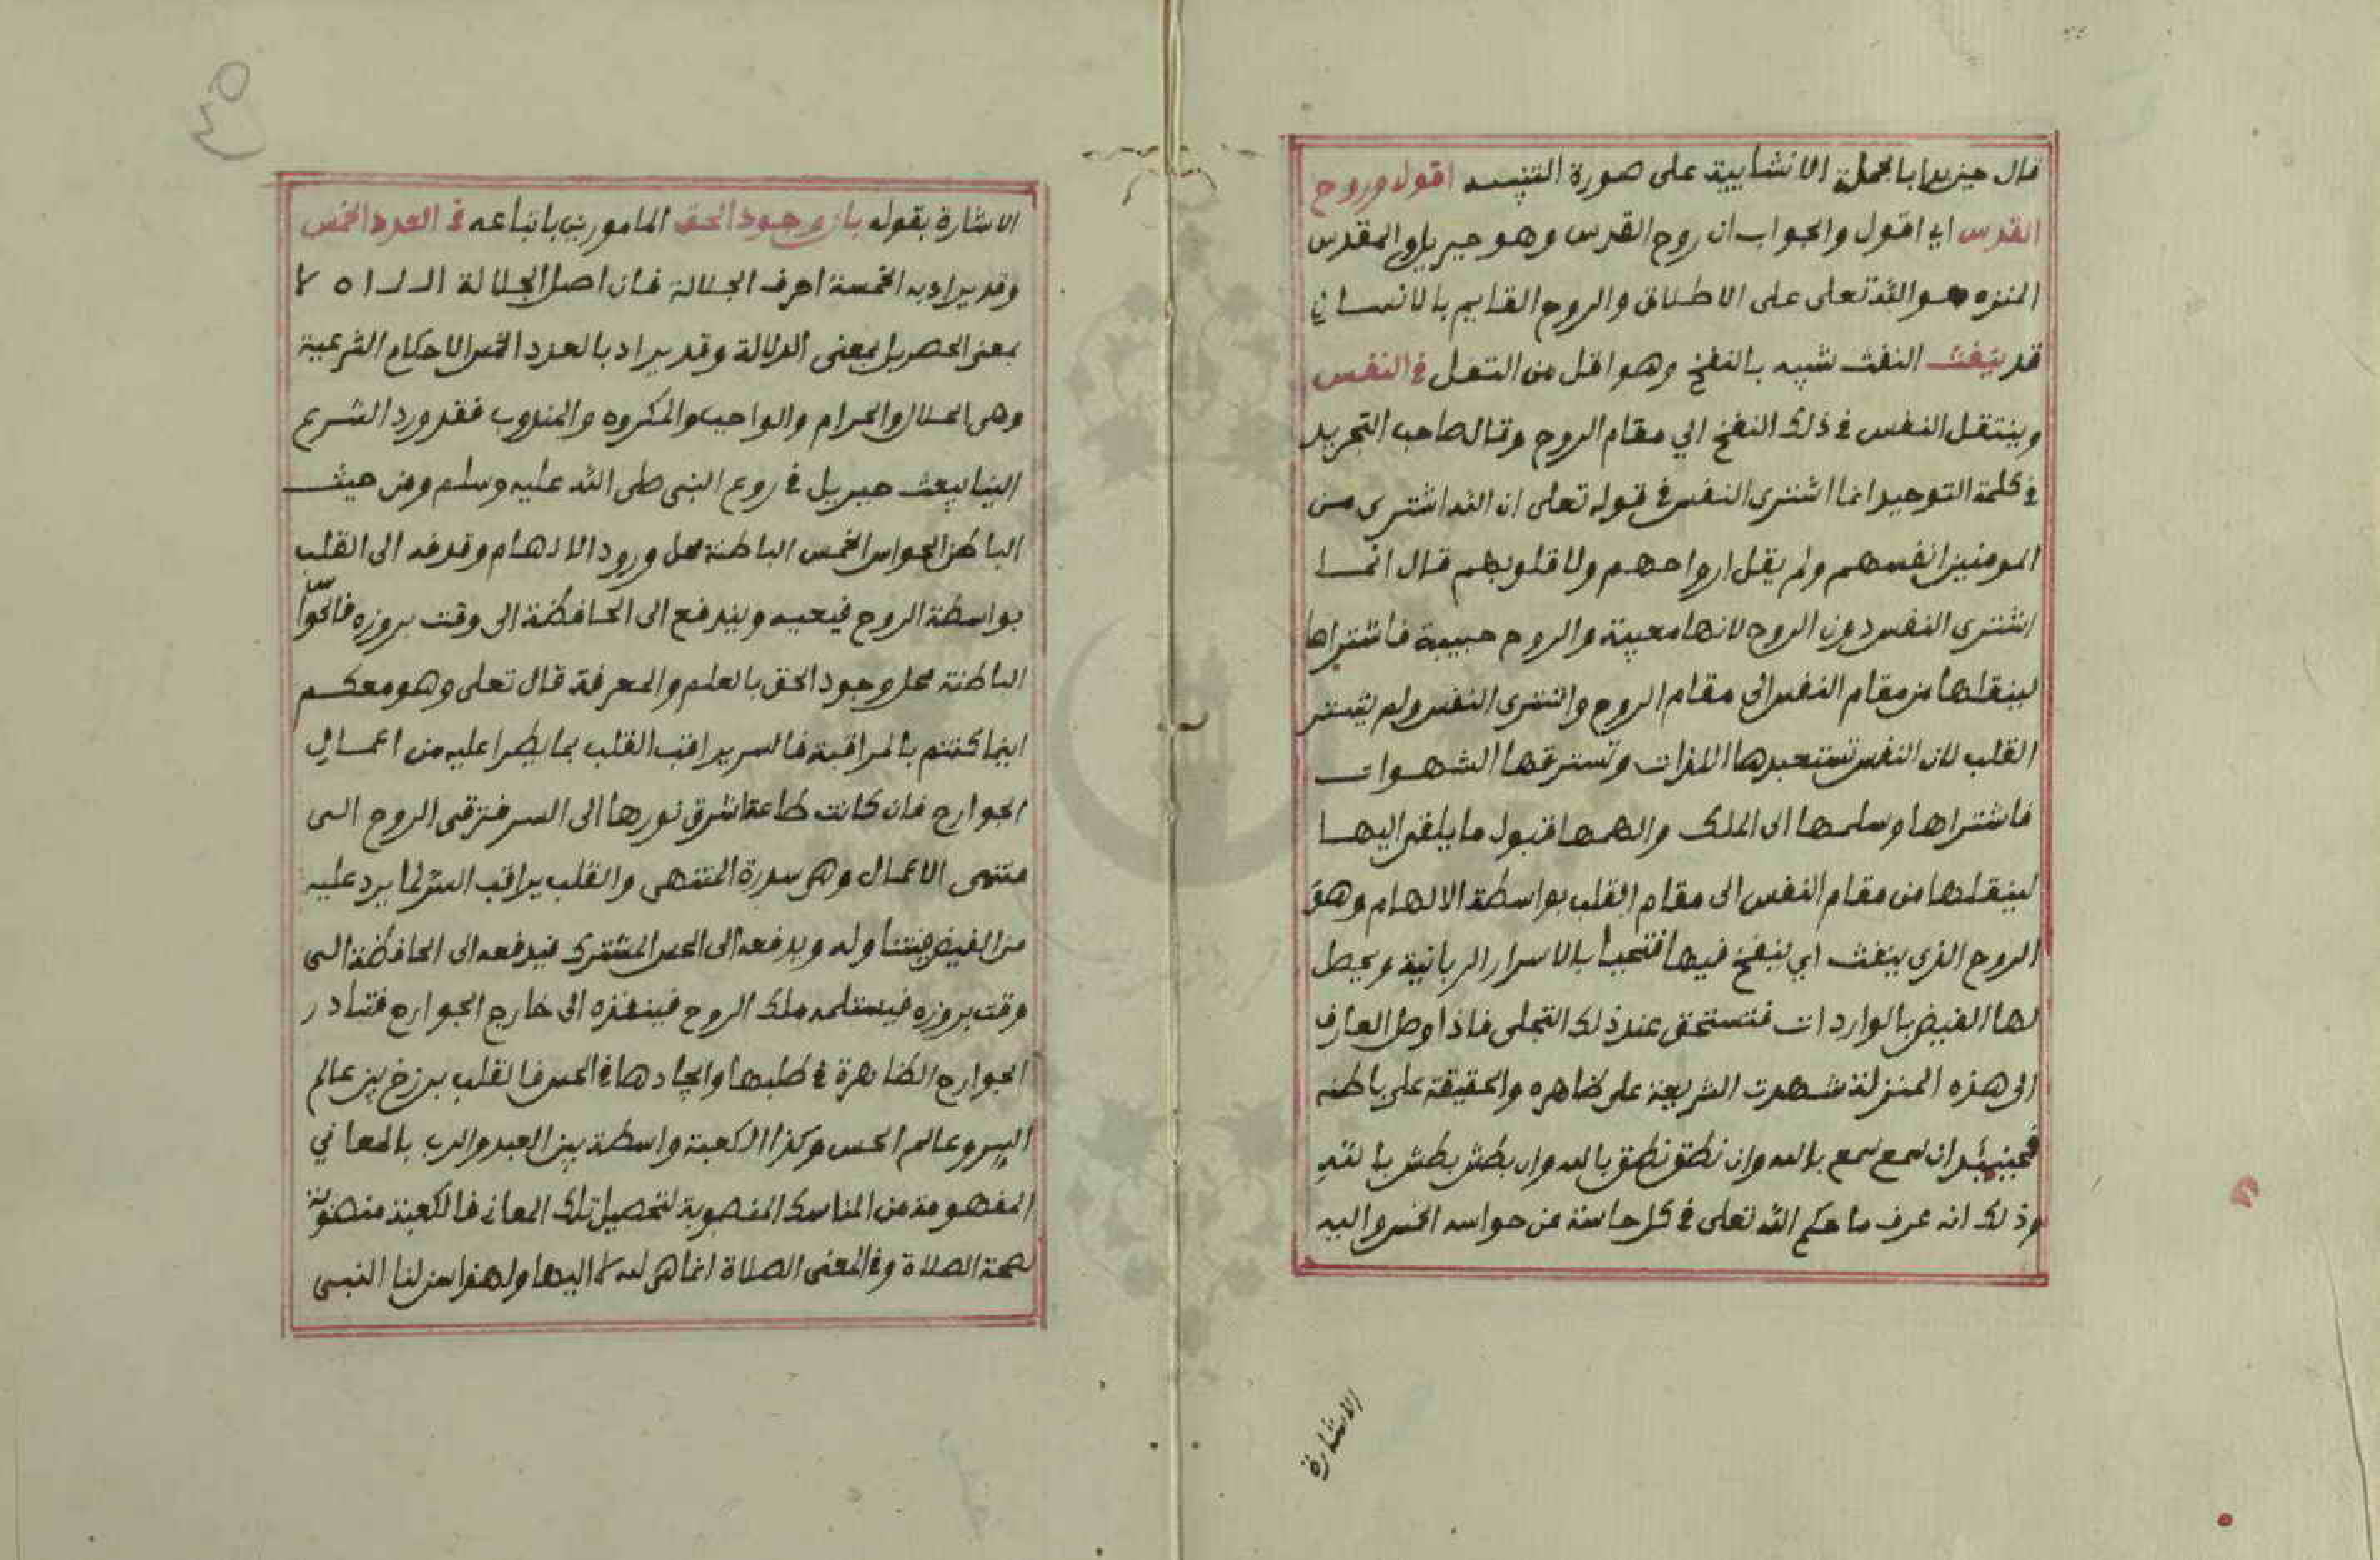 قال حين بدا بالجملة الانشايية على صورة التنبيه اقول وروح
القدس اي اقول والجواب ان روح القدس وهو جبريل والمقدس
المنزه هو الله تعلى على الاطلاق والروح القايم بالانسان
قد ينفث النفث شبيه بالنفخ وهو اقل من التفل في النفس
وينتقل النفس في ذلك النفخ الي مقام الروح وقال صاحب التجريد
في كلمة التوحيد انما اشترى النفس في قوله تعلى ان الله اشترى من
المومنين انفسهم ولم يقل ارواحهم ولا قلوبهم قال انما
اشترى النفس دون الروح لانها معيبة والروح حبيبة فاشتراها
لينقلها من مقام النفس الى مقام الروح واشترى النفس ولم يشتر
القلب لان النفس تستعبدها اللذات وتسترقها الشهوات
فاشتراها وسلمها الى الملك والهمها قبول ما يلقى اليها
لينقلها من مقام النفس الى مقام القلب بواسطة الالهام وهو
الروح الذى ينفث اي ينفخ فيها فتحيا بالاسرار الربانية ويحيط
لها الفيض بالواردات فتستحق عند ذلك التجلى فاذا وصل العارف
الى هذه المنزلة شهدت الشريعة على ظاهره والحقيقة على باطنه
فحينيئد ان سمع سمع بالله وان نطق نطق بالله وان بطش بطش بالله
وذلك انه عرف ما حكم الله تعلى في كل حاسة من حواسه الخمس واليه
الاشارة
الاشارة بقوله بان وجود الحق المامورين باتباعه في العدد الخمس
وقد يراد به الخمسة احرف الجلالة فان اصل الجلالة ا ل ل ا ه لا
بمعنى الحصر بل بمعنى الدلالة وقد يراد بالعدد الخمس الاحكام الشرعية
وهى الحلال والحرام والواجب والمكروه والمندوب فقد ورد الشرع
الينا ببعث جبريل في روع النبى صلى الله عليه وسلم ومن حيث
الباطن الحواس الخمس الباطنة محل ورود الالهام وقدفه الى القلب
بواسطة الروح فيعيه ويندفع الى الحافظة الى وقت بروزه فالحواس
الباطنة محل وجود الحق بالعلم والمعرفة قال تعلى وهو معكم
اينما كنتم بالمراقبة فالسر يراقب القلب بما يطرا عليه من اعمال
الجوارح فان كانت طاعة اشرق نورها الى السر فترقى الروح الى
منتهى الاعمال وهى سدرة المنتهى والقلب يراقب السر لما يرد عليه
من الفيض فيتناوله ويدفعه الى الحس المشترك فيدفعه الى الحافظة الى
وقت بروزه فيستلمه ملك الروح فينفذه الى خارج الجوارح فتبادر
الجوارح الظاهرة في طلبها وايجادها في الحس فالقلب برزخ بين عالم
السر وعالم الحس وكذا الكعبة واسطة بين العبد والرب بالمعاني
المفهومة من المناسك المنصوبة لتحصيل تلك المعاني فالكعبة منصوبة
لصحة الصلاة وفي المعنى الصلاة انما هى لله لا اليها ولهذا سن لنا النبى